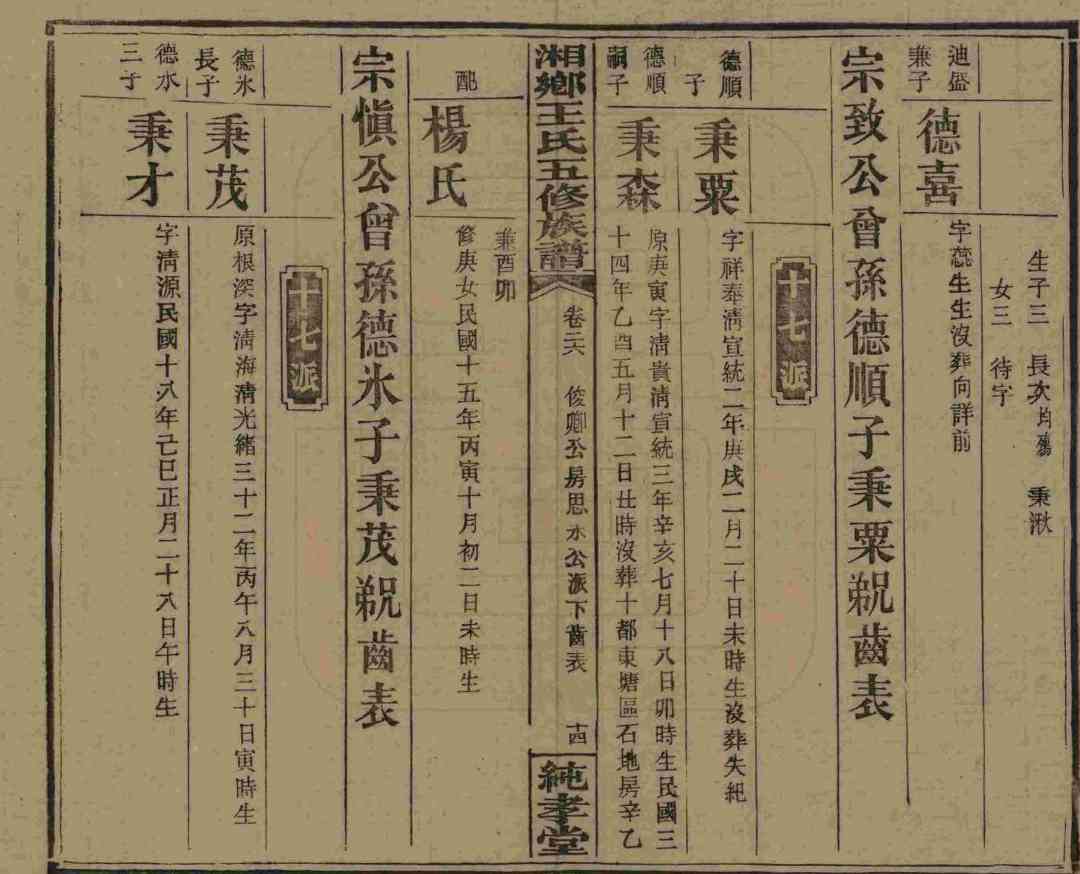 生子三 長次均殤 秉湫
女三 待字
迪盛
兼子
德喜
字蕊生生沒葬向詳前
宗致公曾孫德順子秉粟覡齒表
十七派
德順
子
秉粟
字祥奉清宣統二年庚戌二月二十日未時生沒葬失紀
德順
嗣子
秉森
原庚寅字清貴清宣統三年辛亥七月十八日卯時生民國三
十四年乙酉五月十二日丑時沒葬十都東塘區石地房辛乙
湘鄉王氏五修族譜
卷二六
俊卿公房思水公派下齒表
十四
純孝堂
兼酉卯
配
楊氏
修庚女民國十五年丙寅十月初二日未時生
宗愼公曾孫德氷子秉茂覡齒表
十七派
德氷
長子
秉茂
原根深字清海清光緒三十二年丙午八月三十日寅時生
德水
三子
秉才
字清源民國十八年己巳正月二十八日午時生